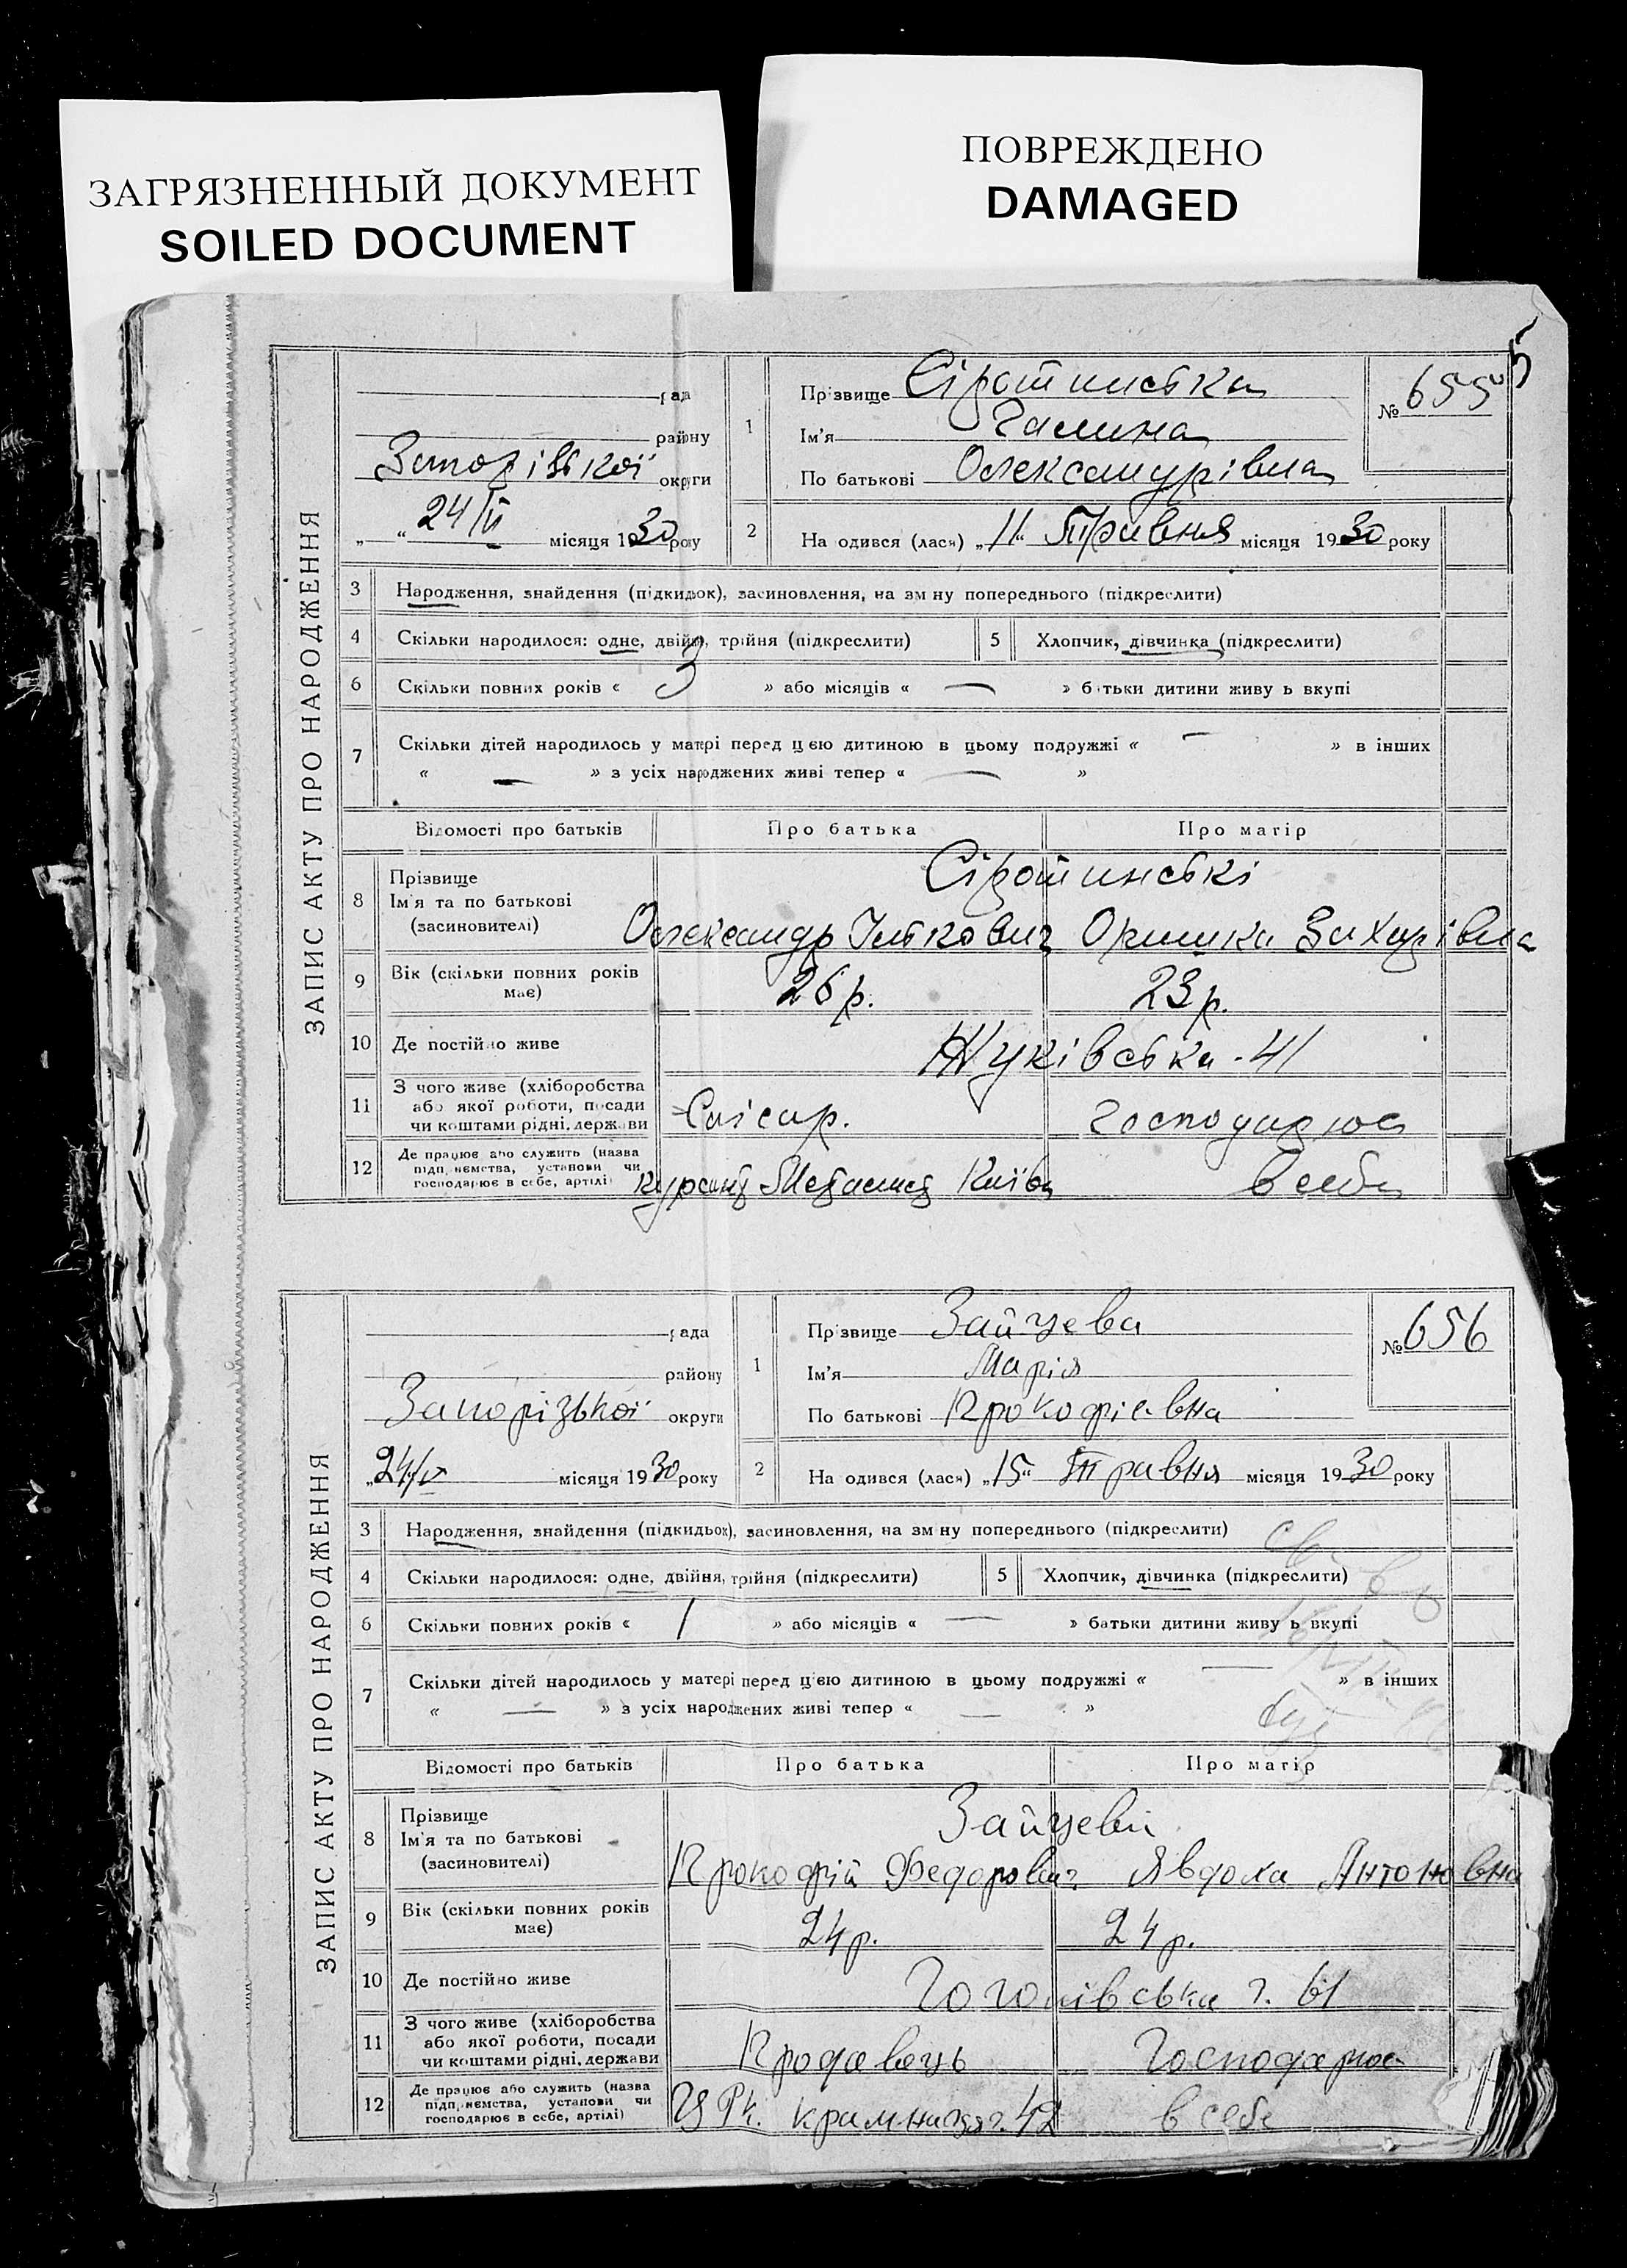 ЗАГРЯЗНЕННЫЙ ДОКУМЕНТ
SOILED DOCUMENT
ПОВРЕЖДЕНО
DAMAGED
ЗАПИС АКТУ ПРО НАРОДЖЕННЯ
рада
району
Запорізької округи
24/V місяця 1930 року
1 Прізвище Сіротинська
Ім'я Галина
По батькові Олександрівна
№ 655
2 На одився (лася) „11" Травня місяця 1930 року
3 Народження, знайдення (підкидьок), засиновлення, на зм ну попереднього (підкреслити)
4 Скільки народилося: одне, двійня, трійня (підкреслити) 5 Хлопчик, дівчинка (підкреслити)
6 Скільки повних років « 3 » або місяців « — » батьки дитини живу ь вкупі
7 Скільки дітей народилось у матері перед цією дитиною в цьому подружжі « — » в інших
« — » з усіх народжених живі тепер « — »
Відомості про батьків Про батька Про матір
8 Прізвище
Ім'я та по батькові
(засиновителі)
Сіротинські
Олександр Ількович Оришка Захарівна
9 Вік (скільки повних років
має) 26 р. 23 р.
10 Де постійно живе Жуківська - 41
11 З чого живе (хліборобства
або якої роботи, посади
чи коштами рідні, держави
Слісар. Господарює
12 Де працює або служить (назва
підп,иємства, установи чи
господарює в себе, артілі)
в себе
ЗАПИС АКТУ ПРО НАРОДЖЕННЯ
рада
району
Запорізької округи
„24/V місяця 1930 року
1 Прізвище Зайцева
Ім'я Марія
По батькові Прокофієвна
№ 656
2 На одився (лася) „15" Травня місяця 1930 року
3 Народження, знайдення (підкидьок), засиновлення, на зм ну попереднього (підкреслити)
4 Скільки народилося: одне, двійня, трійня (підкреслити) 5 Хлопчик, дівчинка (підкреслити)
6 Скільки повних років « 1 » або місяців « — » батьки дитини живу ь вкупі
7 Скільки дітей народилось у матері перед цією дитиною в цьому подружжі « — » в інших
« — » з усіх народжених живі тепер « — »
Відомості про батьків Про батька Про матір
8 Прізвище
Ім'я та по батькові
(засиновителі)
Зайцеви
Прокофій Федорович Явдоха Антоновна
9 Вік (скільки повних років
має) 24 р. 24 р.
10 Де постійно живе Гоголівська г. 61
11 З чого живе (хліборобства
або якої роботи, посади
чи коштами рідні, держави
Продавець Господарює
12 Де працює або служить (назва
підп,иємства, установи чи
господарює в себе, артілі)
ЦРк. крамниця ч. 42 в себе